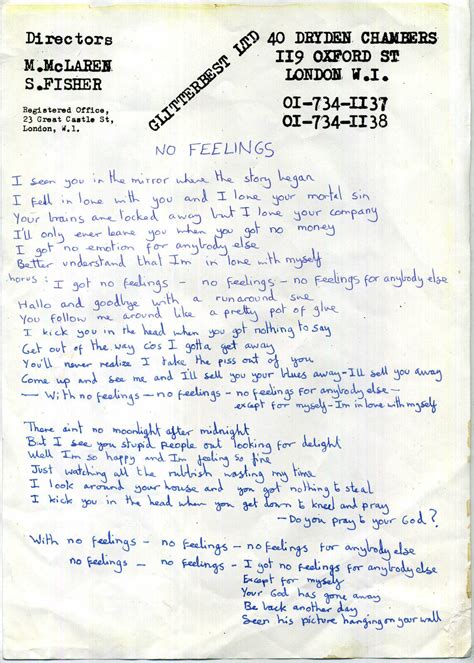 Directors
M.McLAREN
S.FISHER
Registered Office,
23 Great Castle St,
London, W.1.
GLITTERBEST LTD
40 DRYDEN CHAMBERS
119 OXFORD ST
LONDON W.I.
OI-734-II37
OI-734-II38
NO FEELINGS
I seen you in the mirror where the story began
I fell in love with you and I love your mortal sin
Your brains are locked away but I love your company
I'll only ever leave you when you got no money
I got no emotion for anybody else
Better understand that Im in love with myself
horus : I got no feelings - no feelings - no feelings for anybody else
Hallo and goodbye with a runaround sue
You follow me around like a pretty pot of glue
I kick you in the head when you got nothing to say
Get out of the way cos I gotta get away
You'll never realize I take the piss out of you
Come up and see me and I'll sell you your blues away-I'll sell you away
- With no feelings - no feelings - no feelings for anybody else -
except for myself-Im in love with myself
There aint no moonlight after midnight
But I see you stupid people out looking for delight
Well Im so happy and Im feeling so fine
Just watching all the rubbish wasting my time
I look around your house and you got nothing to steal
I kick you in the head when you get down to kneel and pray
- Do you pray to your God?
With no feelings - no feelings - no feelings for anybody else
no feelings - no feelings - I got no feelings for anybody else
Except for myself
Your God has gone away
Be back another day
Seen his picture hanging on your wall